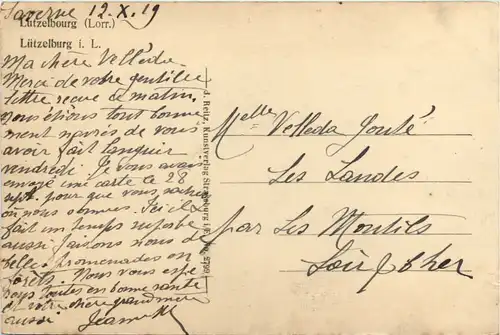 Saverne 12.X.19
Lützelbourg (Lorr.)
Lützelburg i. L.
Ma chère Velléda
Merci de votre gentille
lettre reçue ce matin.
nous étions tout bonne
ment navrés de vous
avoir fait languir
vendredi. Je vous avais
envoyé une carte le 28
sept. pour que vous sachiez
où nous sommes. Ici il
fait un temps superbe
aussi faisons nous de
belles promenades en
forêts. Nous vous espé
rons toutes en bonne santé
et votre chère grand'mère
aussi. Jeanne
J. Reitz, Kunstverlag Strassburg i/E.
Melle Velleda Jouté
Les Landes
par Les Montils
Loir & Cher